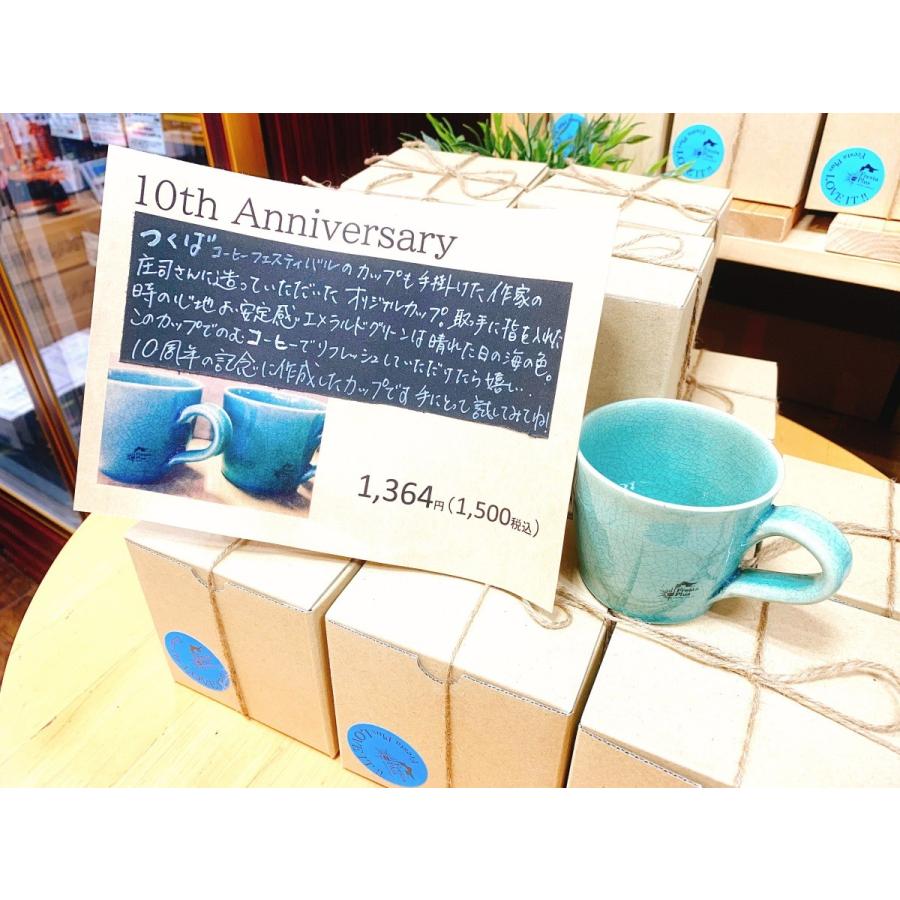 10th Anniversary
つくばコーヒーフェスティバルのカップも手掛けた作家の
庄司さんに造っていただいた オリジナルカップ。取っ手に指を入れた
時の心地お安定感。エメラルドグリーンは晴れた日の海の色。
このカップでのむコーヒーでリフレッシュしていただけたら嬉しい.
10周年の記念に作成したカップです 手にとって試してみてね!
1,364円(1,500税込)
Fiesta
Plus
Fiesta Plus LOVE IT!!
Fiesta
Plus
Fiesta Plus LOVE IT!!
Fiesta
Plus